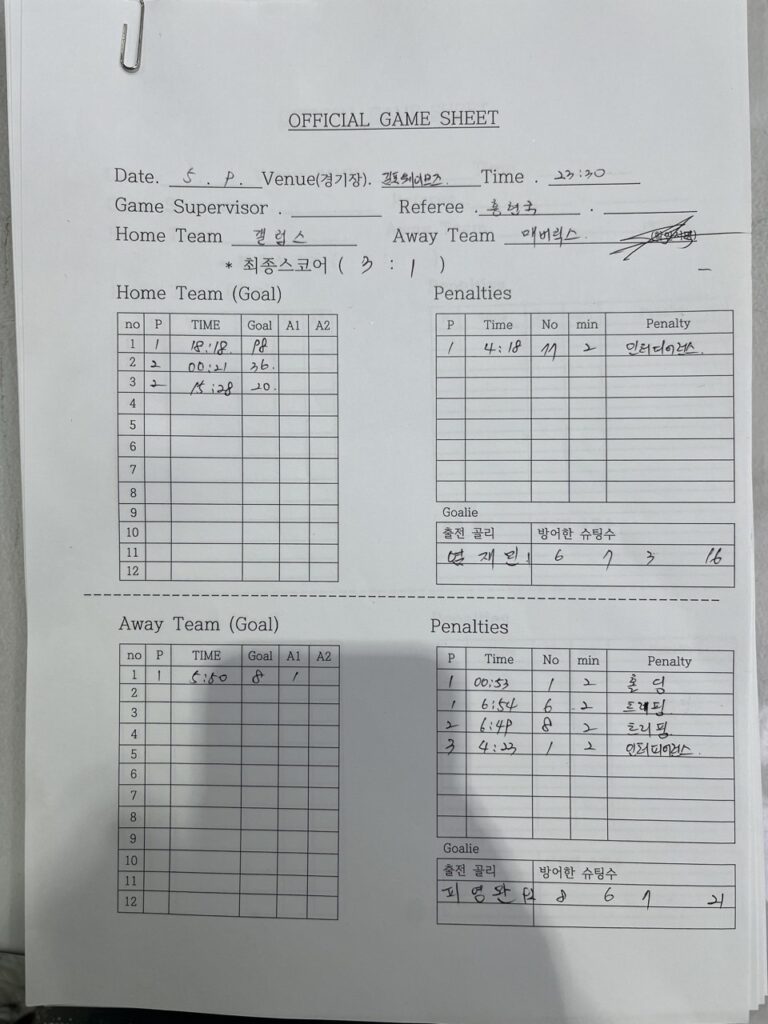 OFFICIAL GAME SHEET
Date. 5 . 9. Venue(경기장). 김포웨이브즈. Time . 23:30
Game Supervisor . Referee . .
Home Team 갤럽스 Away Team 매버릭스
* 최종스코어 ( 3 : 1 )
Home Team (Goal)
no P TIME Goal A1 A2
1 1 18:18. 98
2 2 00:21 36.
3 2 15:28 20.
4
5
6
7
8
9
10
11
12
Penalties
P Time No min Penalty
1 4:18 77 2
Goalie
출전 골리 방어한 슈팅수
재민 6 7 3 16
Away Team (Goal)
no P TIME Goal A1 A2
1 1 5:50 8 1
2
3
4
5
6
7
8
9
10
11
12
Penalties
P Time No min Penalty
1 00:53 1 2 홀딩
1 6:54 6 2 트리핑
2 6:49 8 2 트리핑
3 4:23 1 2 인터피어런스.
Goalie
출전 골리 방어한 슈팅수
피영완 8 6 7 21